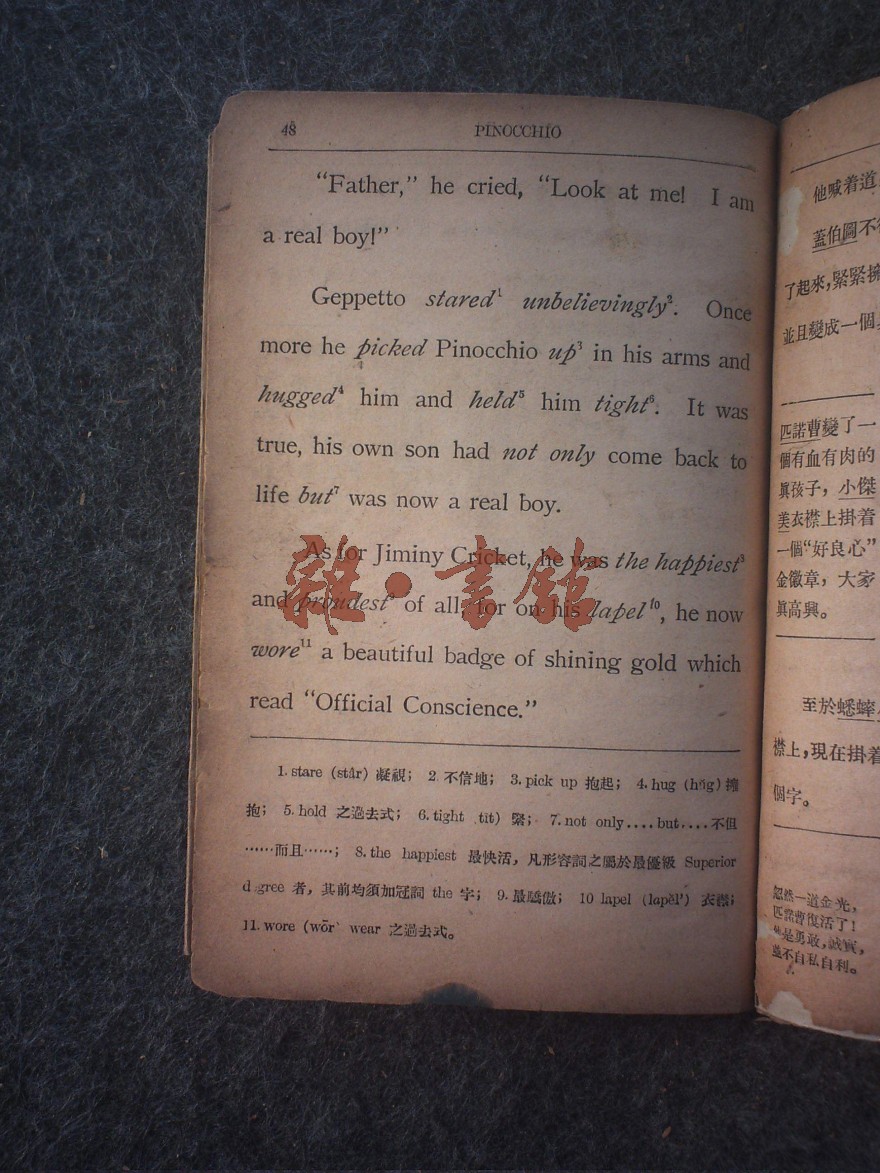 48
PINOCCHIO
“Father,” he cried, “Look at me! I am
a real boy!”
Geppetto stared¹ unbelievingly². Once
more he picked Pinocchio up³ in his arms and
hugged⁴ him and held⁵ him tight⁶. It was
true, his own son had not only come back to
life but⁷ was now a real boy.
As for Jiminy Cricket, he was the happiest⁸
and proudest⁹ of all, for on his lapel¹⁰, he now
wore¹¹ a beautiful badge of shining gold which
read “Official Conscience.”
1. stare (stâr) 凝視； 2. 不信地； 3. pick up 抱起； 4. hug (hŭg) 擁
抱； 5. hold 之過去式； 6. tight tīt) 緊； 7. not only....but....不但
……而且……； 8. the happiest 最快活，凡形容詞之屬於最優級 Superior
d gree 者，其前均須加冠詞 the 字； 9. 最驕傲； 10 lapel (lapĕl') 衣襟；
11. wore (wōr) wear 之過去式。
雜·書館
他喊着道
蓋伯圖不
了起來，緊緊擁
並且變成一個
匹諾曹變了一
個有血有肉的
眞孩子，小傑
美衣襟上掛着
一個“好良心”
金徽章，大家
眞高興。
至於蟋蟀
襟上，現在掛着
個字。
忽然一道金光，
匹諾曹復活了！
他是勇敢，誠實，
並不自私自利。